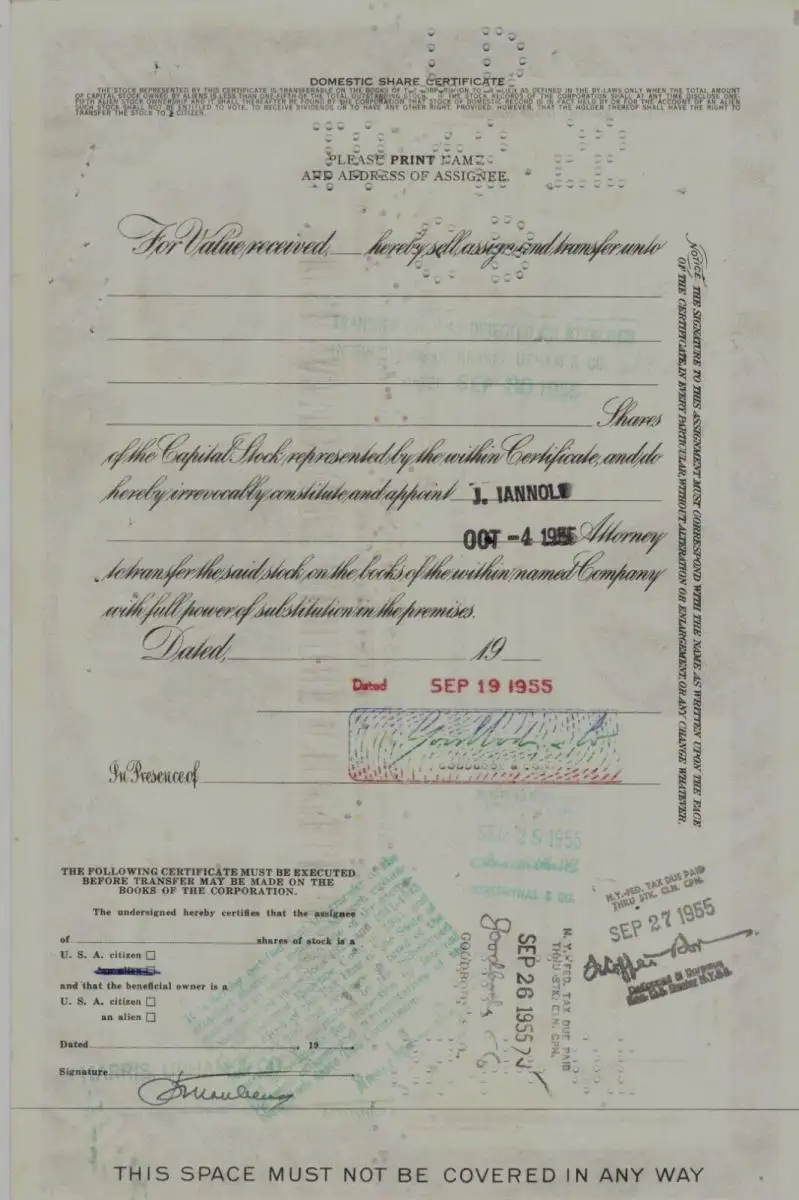 DOMESTIC SHARE CERTIFICATE
THE STOCK REPRESENTED BY THIS CERTIFICATE IS TRANSFERABLE ON THE BOOKS OF THE CORPORATION TO AN ALIEN AS DEFINED IN THE BY-LAWS ONLY WHEN THE TOTAL AMOUNT
OF CAPITAL STOCK OWNED BY ALIENS IS LESS THAN ONE-FIFTH OF THE TOTAL OUTSTANDING STOCK. IF THE STOCK RECORDS OF THE CORPORATION SHALL AT ANY TIME DISCLOSE ONE-
FIFTH ALIEN STOCK OWNERSHIP AND IT SHALL THEREAFTER BE FOUND BY THE CORPORATION THAT STOCK OF DOMESTIC RECORD IS IN FACT HELD BY OR FOR THE ACCOUNT OF AN ALIEN
SUCH STOCK SHALL NOT BE ENTITLED TO VOTE, TO RECEIVE DIVIDENDS OR TO HAVE ANY OTHER RIGHT. PROVIDED, HOWEVER, THAT THE HOLDER THEREOF SHALL HAVE THE RIGHT TO
TRANSFER THE STOCK TO A CITIZEN.
PLEASE PRINT NAME
AND ADDRESS OF ASSIGNEE.
For Value received, hereby sell, assign and transfer unto
SEP 26 1955
Shares
of the Capital Stock represented by the within Certificate, and do
hereby irrevocably constitute and appoint J. IANNOLE
OCT -4 1955 Attorney
to transfer the said stock on the books of the within named Company
with full power of substitution in the premises.
Dated, 19
Dated SEP 19 1955
Goodbody & Co
GOODBODY & CO
In Presence of
NOTICE: THE SIGNATURE TO THIS ASSIGNMENT MUST CORRESPOND WITH THE NAME AS WRITTEN UPON THE FACE
OF THE CERTIFICATE, IN EVERY PARTICULAR, WITHOUT ALTERATION OR ENLARGEMENT, OR ANY CHANGE WHATEVER.
SEP 26 1955
THE FOLLOWING CERTIFICATE MUST BE EXECUTED
BEFORE TRANSFER MAY BE MADE ON THE
BOOKS OF THE CORPORATION.
The undersigned hereby certifies that the assignee
of shares of stock is a
U. S. A. citizen
and that the beneficial owner is a
U. S. A. citizen
an alien
Dated 19
Signature
Goodbody & Co
SEP 26 1955
N. Y.-FED. TAX DUE PAID
THRU STK. CLN. CPN.
N.Y.-FED. TAX DUE PAID
THRU STK. CLN. CPN.
SEP 27 1955
THIS SPACE MUST NOT BE COVERED IN ANY WAY